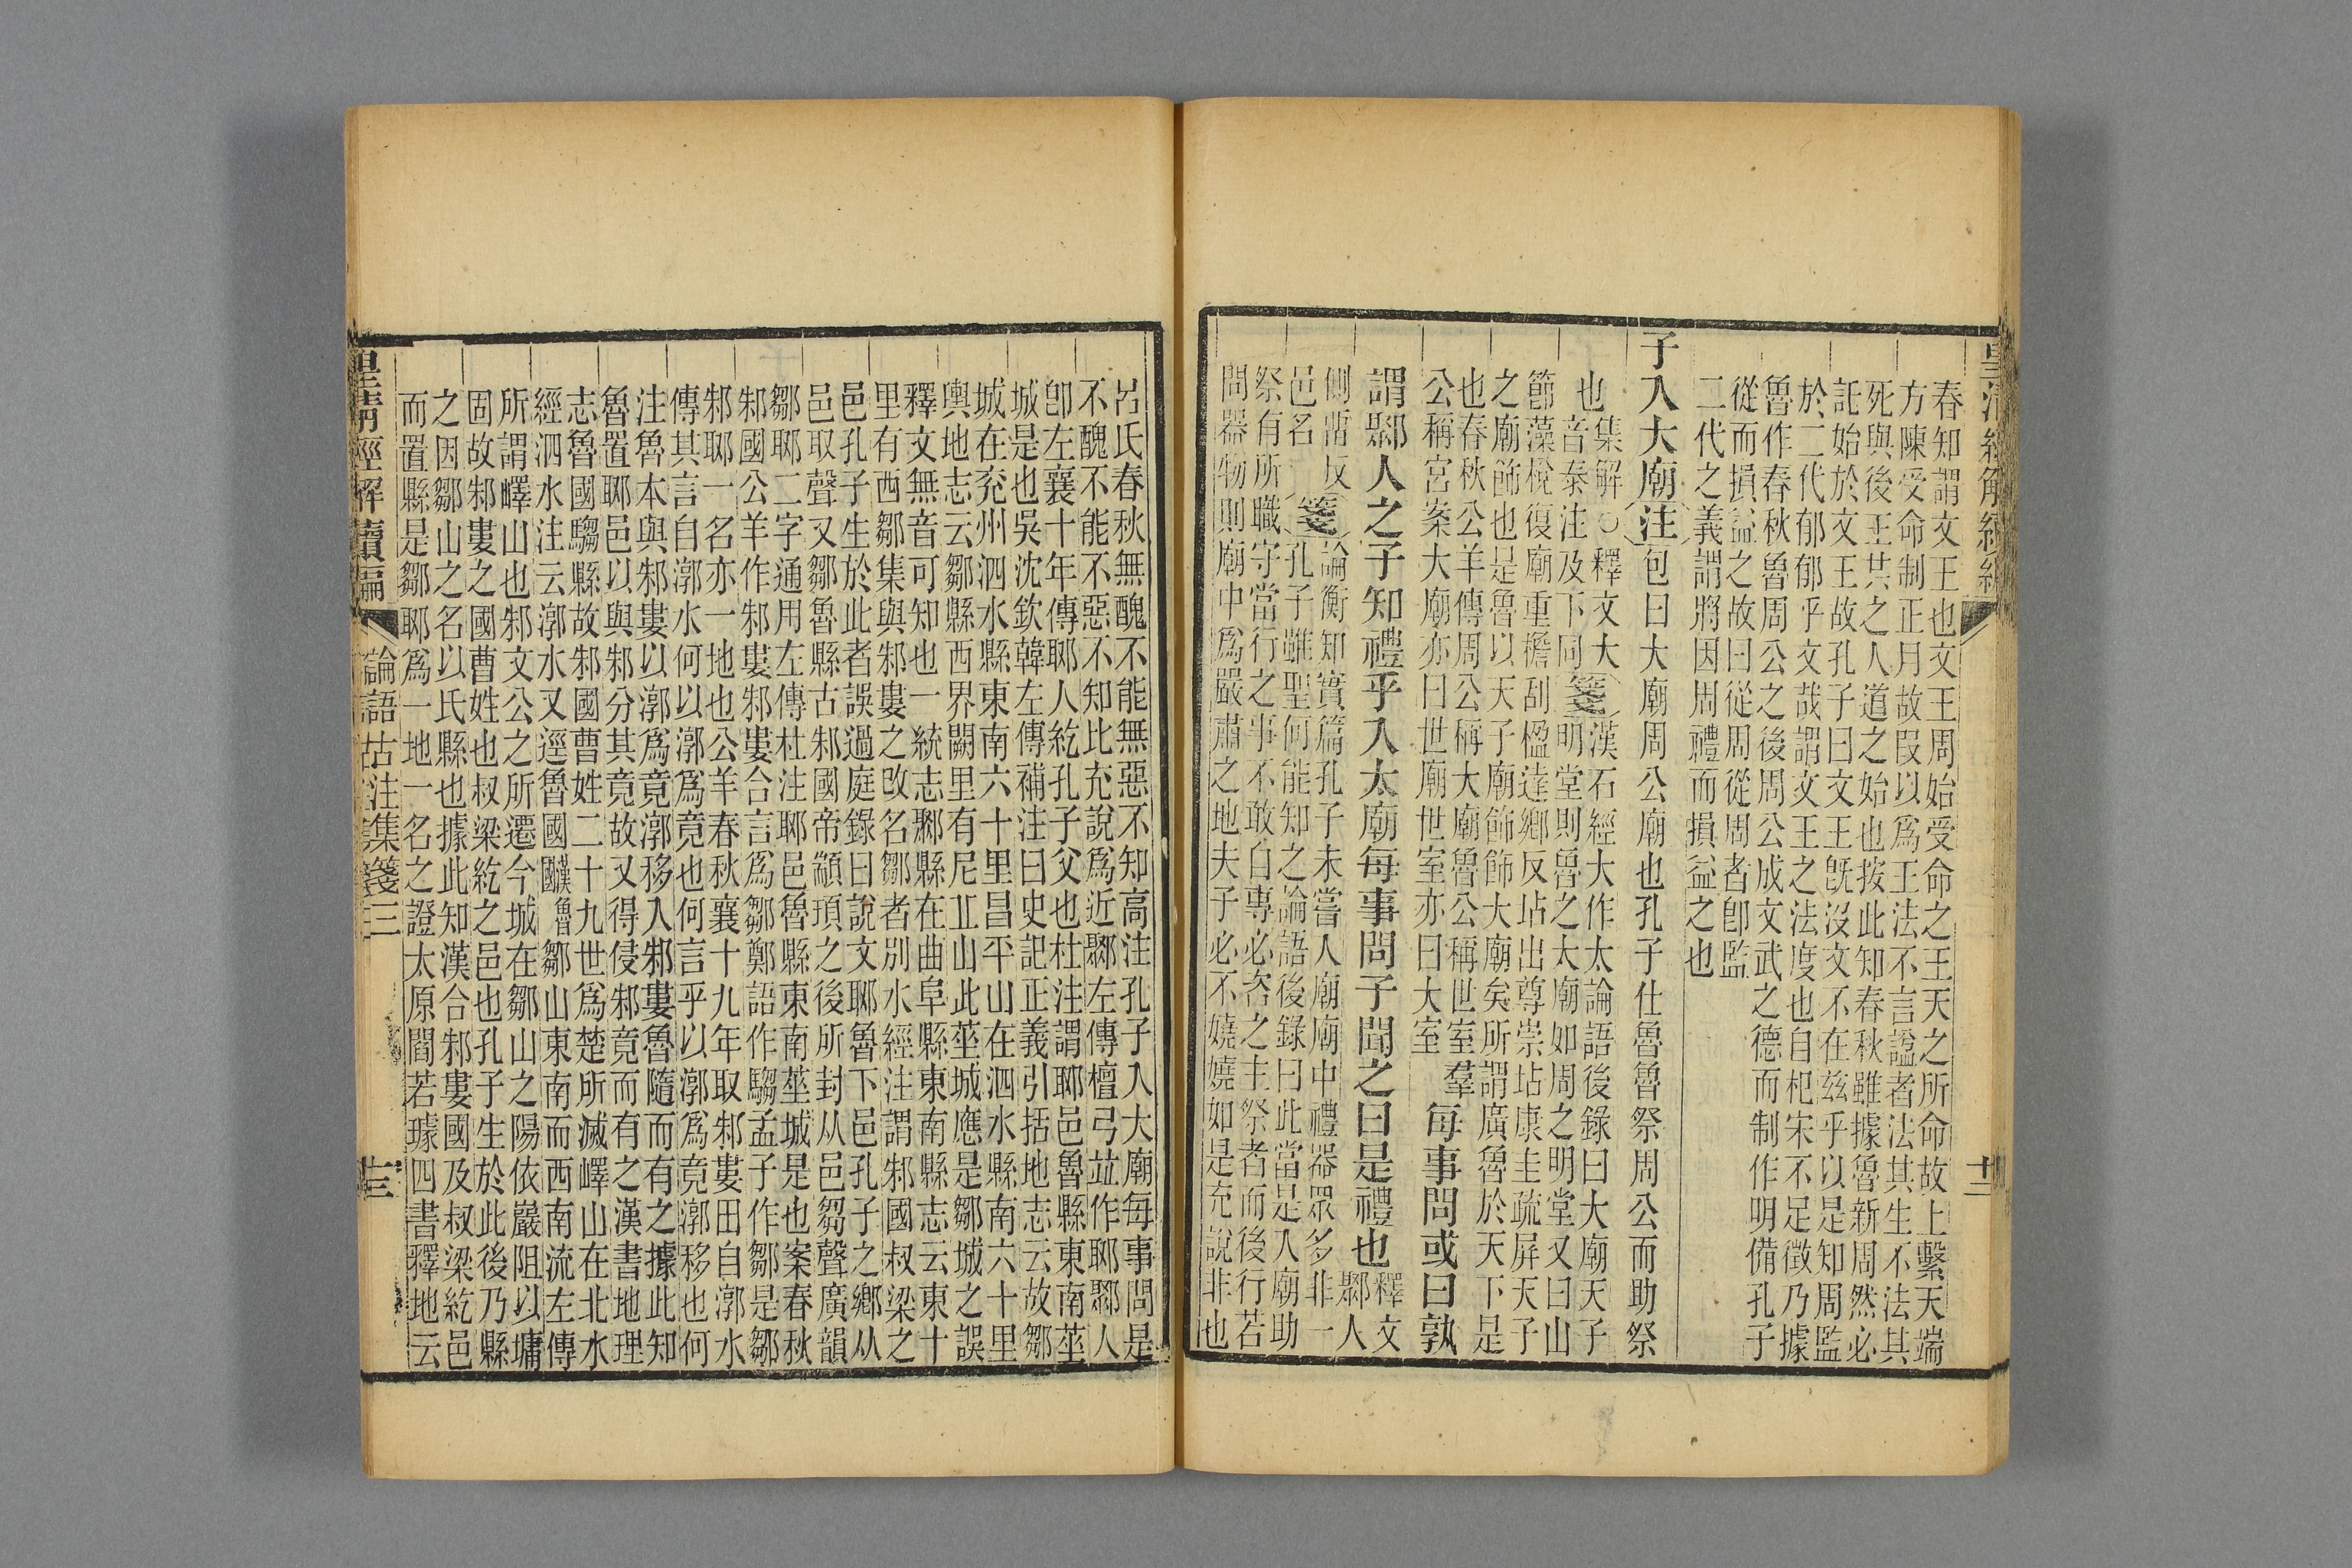 皇清經解續編
十二
春知謂文王也文王周始受命之王天之所命故上繫天端
方陳受命制正月故叚以爲王法不言諡者法其生不法其
死與後王共之人道之始也按此知春秋雖據魯新周然必
託始於文王故孔子曰文王旣沒文不在茲乎以是知周監
於二代郁郁乎文哉謂文王之法度也自杞宋不足徵乃據
魯作春秋魯周公之後周公成文武之德而制作明備孔子
從而損益之故曰從周從周者卽監
二代之義謂將因周禮而損益之也
子入大廟注包曰大廟周公廟也孔子仕魯魯祭周公而助祭
也集解○釋文大
音泰注及下同
箋漢石經大作太論語後錄曰大廟天子
明堂則魯之太廟如周之明堂又曰山
節藻梲復廟重檐刮楹達鄉反坫出尊崇坫康圭疏屏天子
之廟飾也是魯以天子廟飾飾大廟矣所謂廣魯於天下是
也春秋公羊傳周公稱大廟魯公稱世室羣
公稱宮案大廟亦曰世廟世室亦曰大室
每事問或曰孰
謂鄹人之子知禮乎入太廟每事問子聞之曰是禮也
釋文
鄹人
側畱反
邑名
箋論衡知實篇孔子未嘗人廟廟中禮器眾多非一
孔子雖聖何能知之論語後錄曰此當是入廟助
祭有所職守當行之事不敢自專必咨之主祭者而後行若
問器物則廟中爲嚴肅之地夫子必不嬈嬈如是充說非也
呂氏春秋無醜不能無惡不知高注孔子入大廟每事問是
不醜不能不惡不知比充說爲近鄹左傳檀弓竝作郰鄹人
卽左襄十年傳郰人紇孔子父也杜注謂郰邑魯縣東南莝
城是也吳沈欽韓左傳補注曰史記正義引括地志云故鄒
城在兖州泗水縣東南六十里昌平山在泗水縣南六十里
輿地志云鄒縣西界闕里有尼丠山此莝城應是鄒城之誤
釋文無音可知也一統志鄹縣在曲阜縣東南縣志云東十
里有西鄒集與邾婁之改名鄒者別水經注謂邾國叔梁之
邑孔子生於此者誤過庭錄曰說文郰魯下邑孔子之鄉从
邑取聲又鄒魯縣古邾國帝顓頊之後所封从邑芻聲廣韻
鄒郰二字通用左傳杜注郰邑魯縣東南莝城是也案春秋
邾國公羊作邾婁邾婁合言爲鄒鄭語作騶孟子作鄒是鄒
邾郰一名亦一地也公羊春秋襄十九年取邾婁田自漷水
傳其言自漷水何以漷爲竟也何言乎以漷爲竟漷移也何
注魯本與邾婁以漷爲竟漷移入邾婁魯隨而有之據此知
魯置郰邑以與邾分其竟故又得侵邾竟而有之漢書地理
志魯國騶縣故邾國曹姓二十九世爲楚所滅嶧山在北水
經泗水注云漷水又逕魯國漢魯國鄒山東南而西南流左傳
所謂嶧山也邾文公之所遷今城在鄒山之陽依巖阻以墉
固故邾婁之國曹姓也叔梁紇之邑也孔子生於此後乃縣
之因鄒山之名以氏縣也據此知漢合邾婁國及叔梁紇邑
而置縣是鄒郰爲一地一名之證太原閻若璩四書釋地云
皇清經解續編
論語古注集箋三
十三